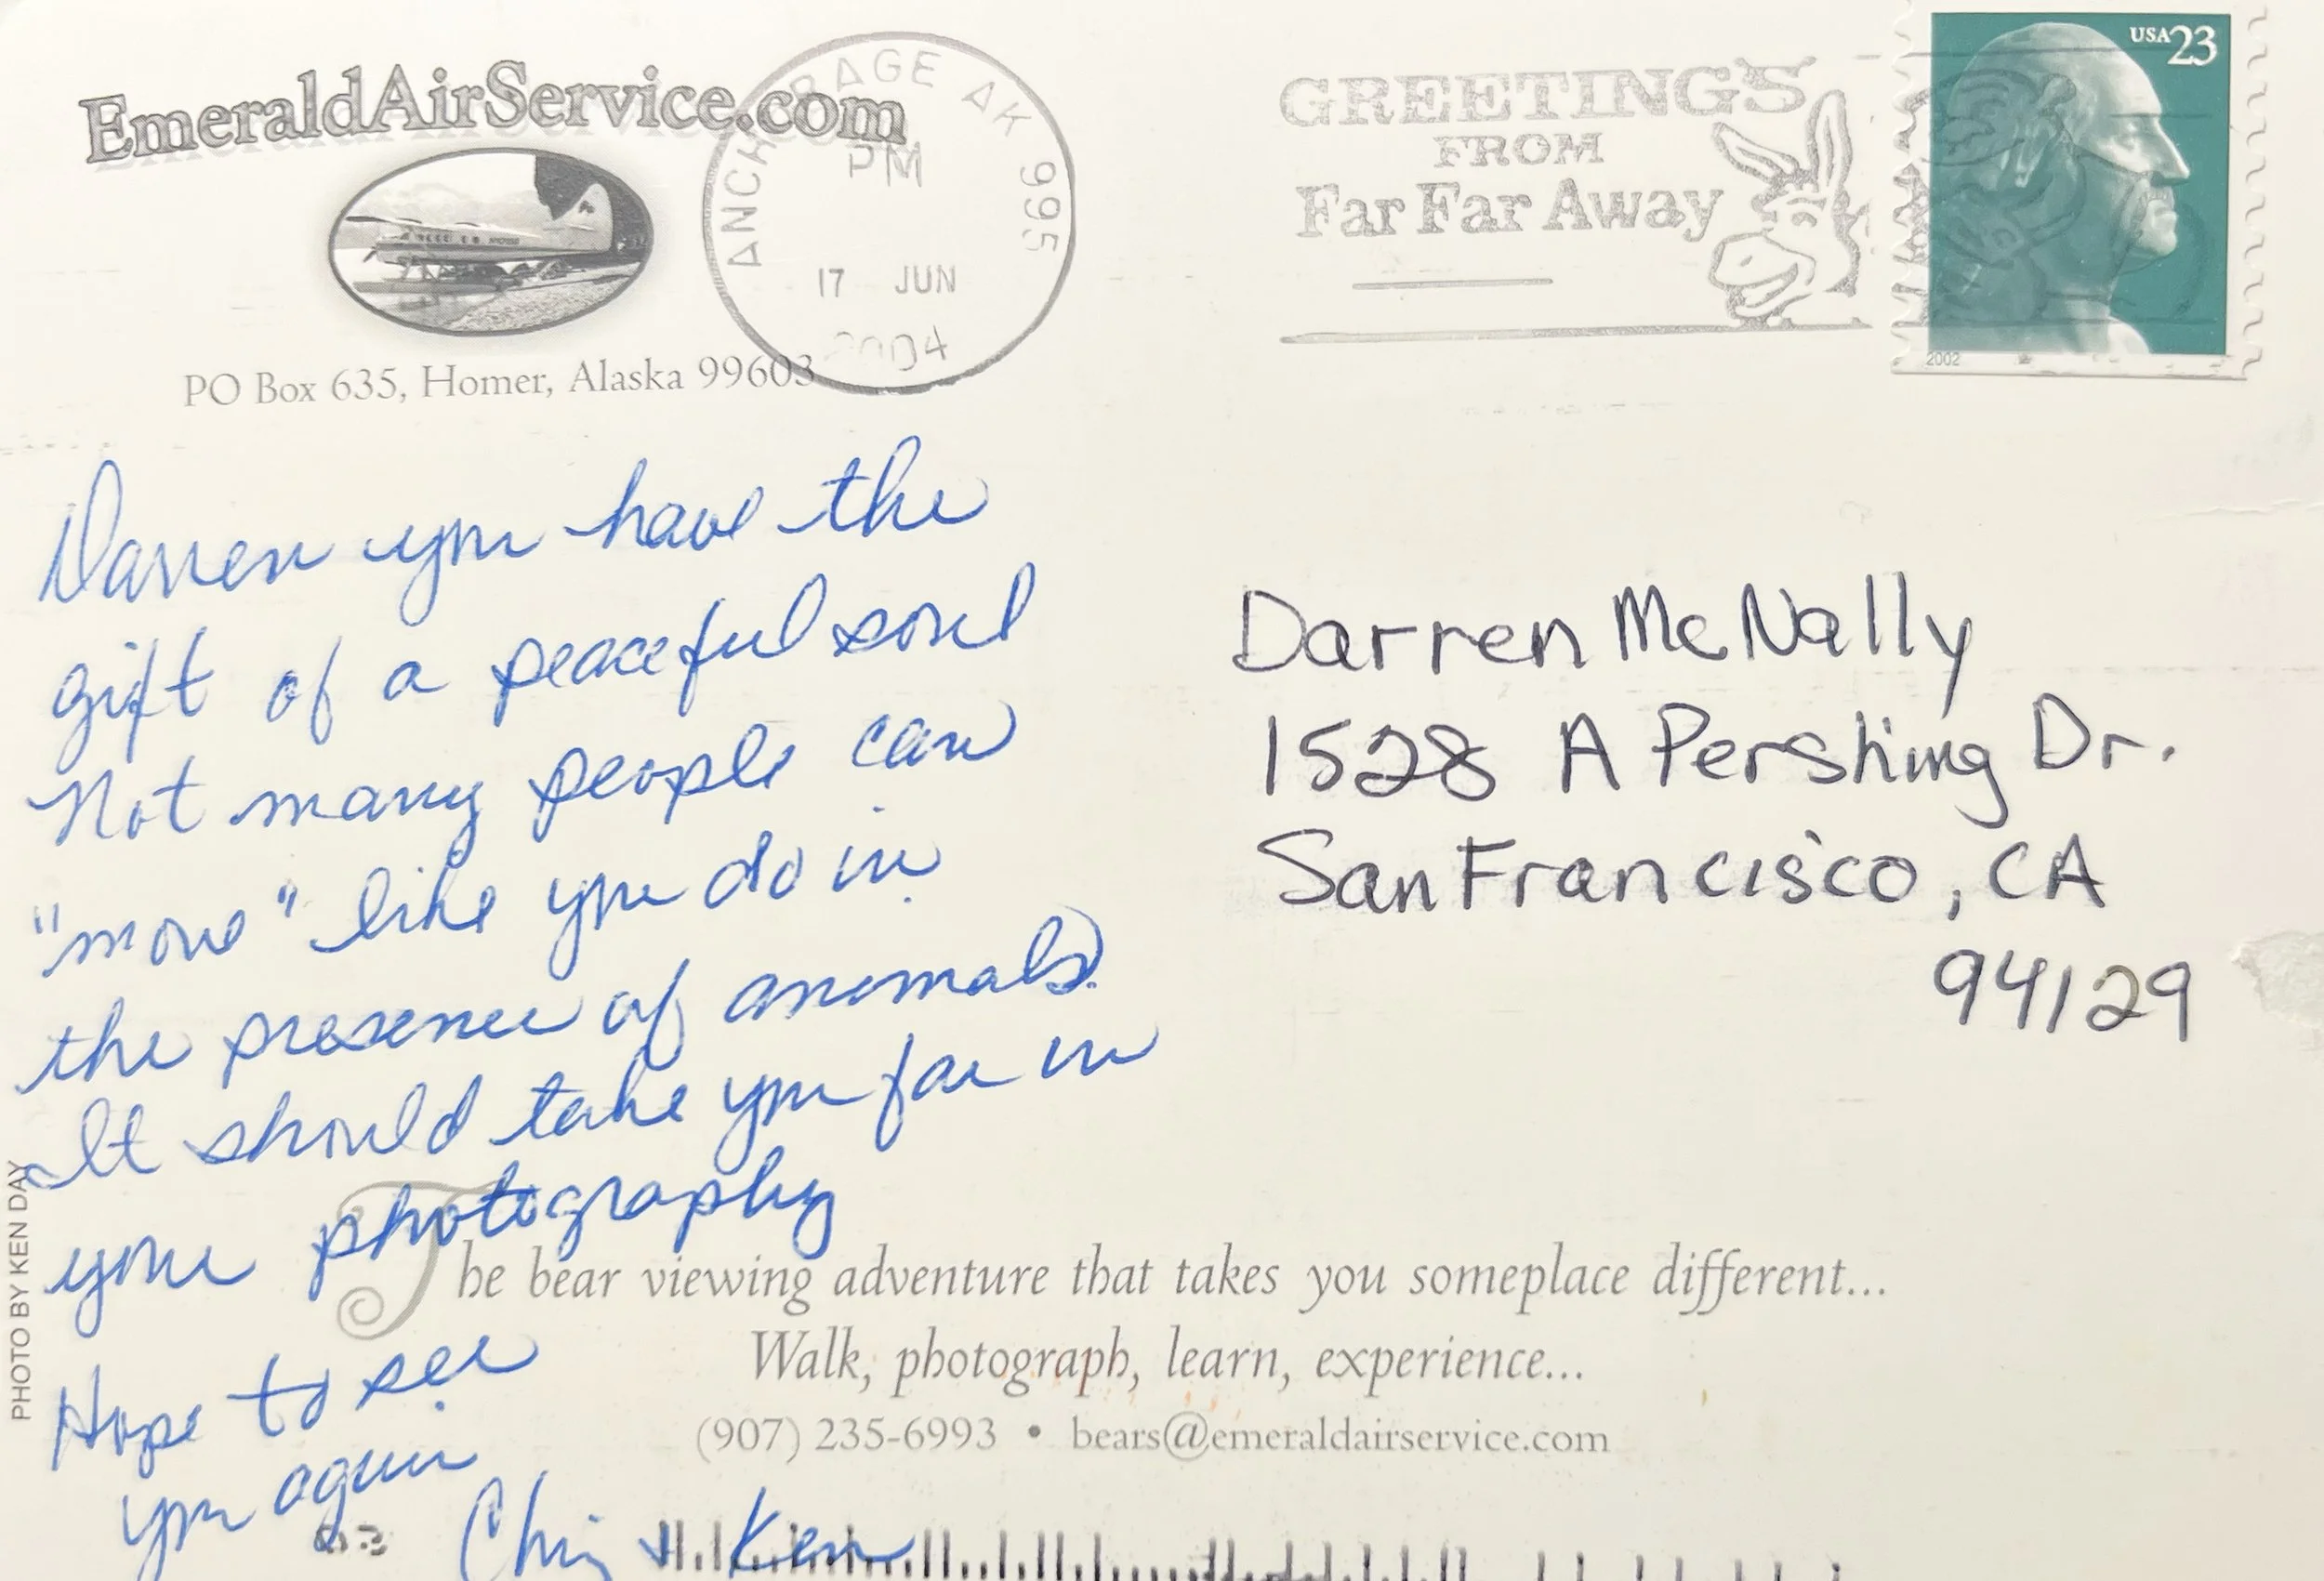 EmeraldAirService.com
PO Box 635, Homer, Alaska 99603
ANCHORAGE AK 995
PM
17 JUN
2004
GREETINGS
FROM
Far Far Away
USA 23
2002
Darren you have the
gift of a peaceful soul
Not many people can
"move" like you do in
the presence of animals.
It should take you far in
your photography
Hope to see
you again
& Ken
Darren McNally
1528 A Pershing Dr.
San Francisco, CA
94129
PHOTO BY KEN DAY
The bear viewing adventure that takes you someplace different...
Walk, photograph, learn, experience...
(907) 235-6993 • bears@emeraldairservice.com